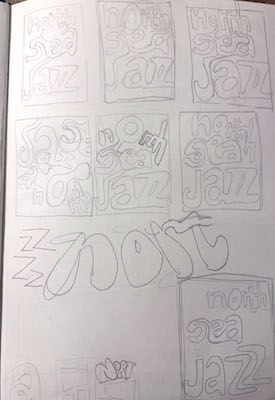 north
sea
jazz
north
sea
jazz
north
sea
jazz
north
n o rth
sea
jazz
north
sea
jazz
nort
north
sea
jazz
NORT